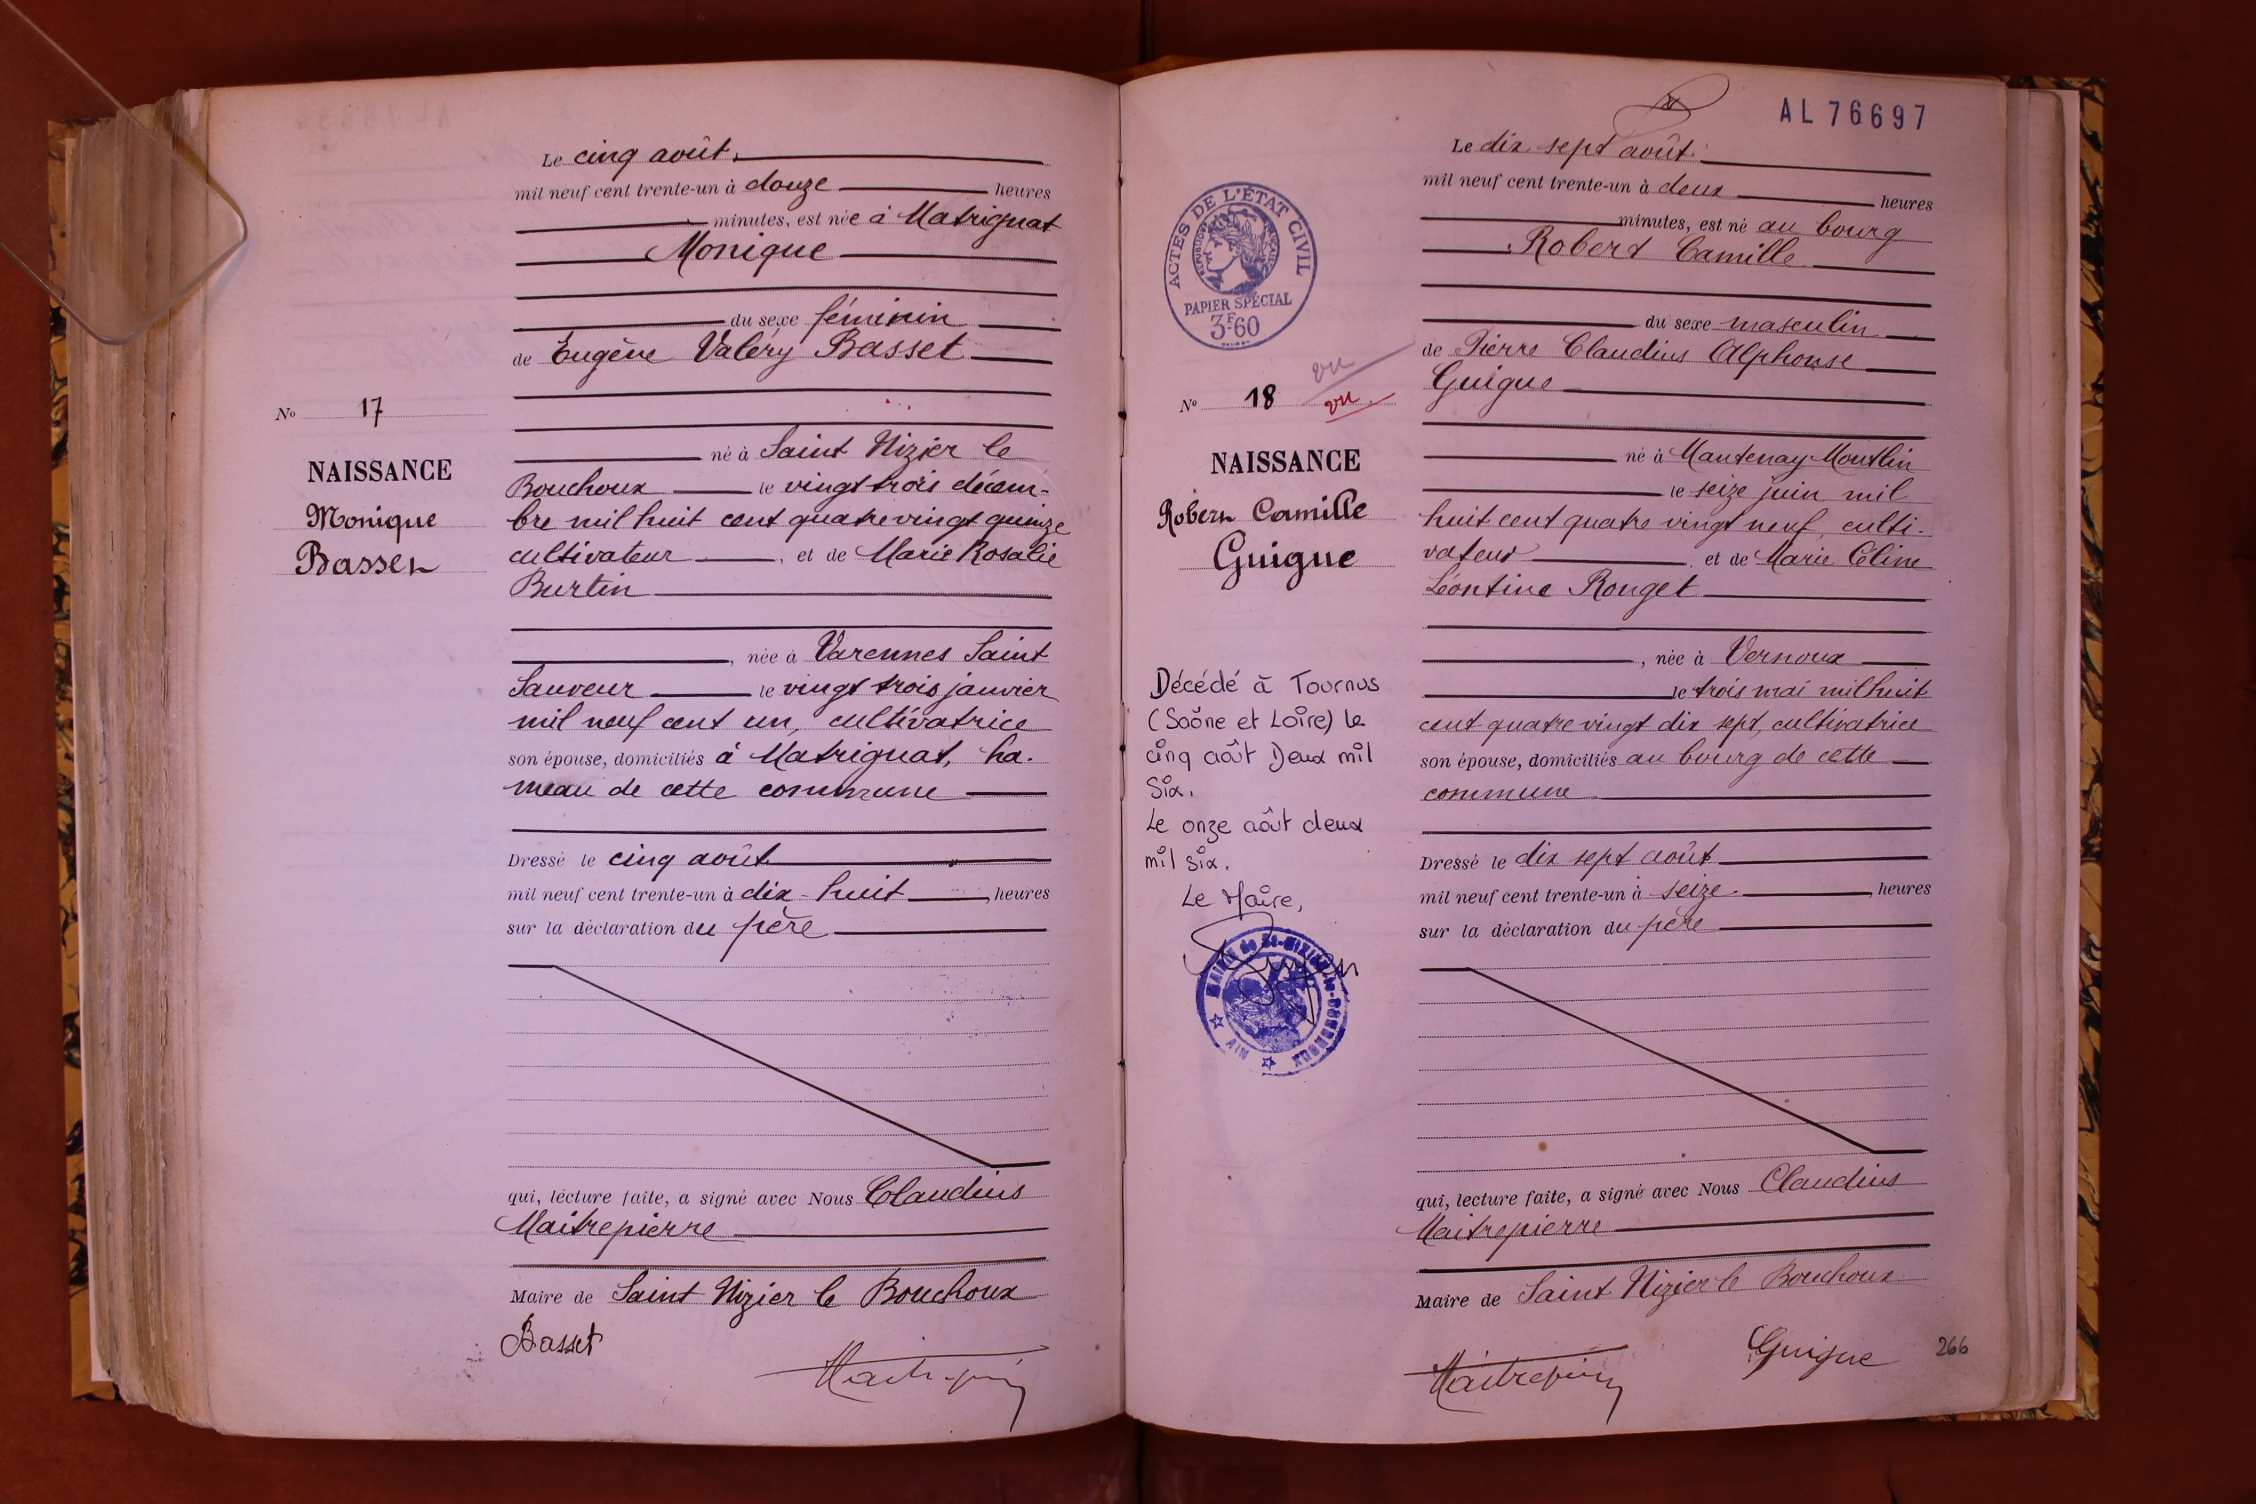 Le cinq août
mil neuf cent trente-un à douze heures
minutes, est née à Matrignat
Monique
du sexe féminin
de Eugène Valéry Basset
né à Saint Nizier le
Bouchoux le vingt trois décem-
bre mil huit cent quatre vingt quinze
cultivateur, et de Marie Rosalie
Burtin
, née à Varennes Saint
Sauveur le vingt trois janvier
mil neuf cent un, cultivatrice
son épouse, domiciliés à Matrignat, ha-
meau de cette commune
Dressé le cinq août
mil neuf cent trente-un à dix-huit, heures
sur la déclaration du père
qui, lecture faite, a signé avec Nous Claudius
Maitrepierre
Maire de Saint Nizier le Bouchoux
Basset
No 17
NAISSANCE
Monique
Basset
AL 76697
Le dix sept août
mil neuf cent trente-un à deux heures
minutes, est né au bourg
Robert Camille
du sexe masculin
de Pierre Claudius Alphonse
Guigue
né à Mantenay Montlin
le seize juin mil
huit cent quatre vingt neuf, culti-
vateur, et de Marie Céline
Léontine Rouget
, née à Vernoux
le trois mai mil huit
cent quatre vingt dix sept, cultivatrice
son épouse, domiciliés au bourg de cette
commune
Dressé le dix sept août
mil neuf cent trente-un à seize, heures
sur la déclaration du père
qui, lecture faite, a signé avec Nous Claudius
Maitrepierre
Maire de Saint Nizier le Bouchoux
Maitrepierre
Guigue
266
ACTES DE L'ÉTAT CIVIL
RÉPUBLIQUE FRANÇAISE
PAPIER SPÉCIAL
3F60
vu
No 18 vu
NAISSANCE
Robert Camille
Guigue
Décédé à Tournus
(Saône et Loire) le
cinq août Deux mil
Six.
Le onze août deux
mil six.
Le Maire,
MAIRIE de St-NIZIER-le-BOUCHOUX
AIN